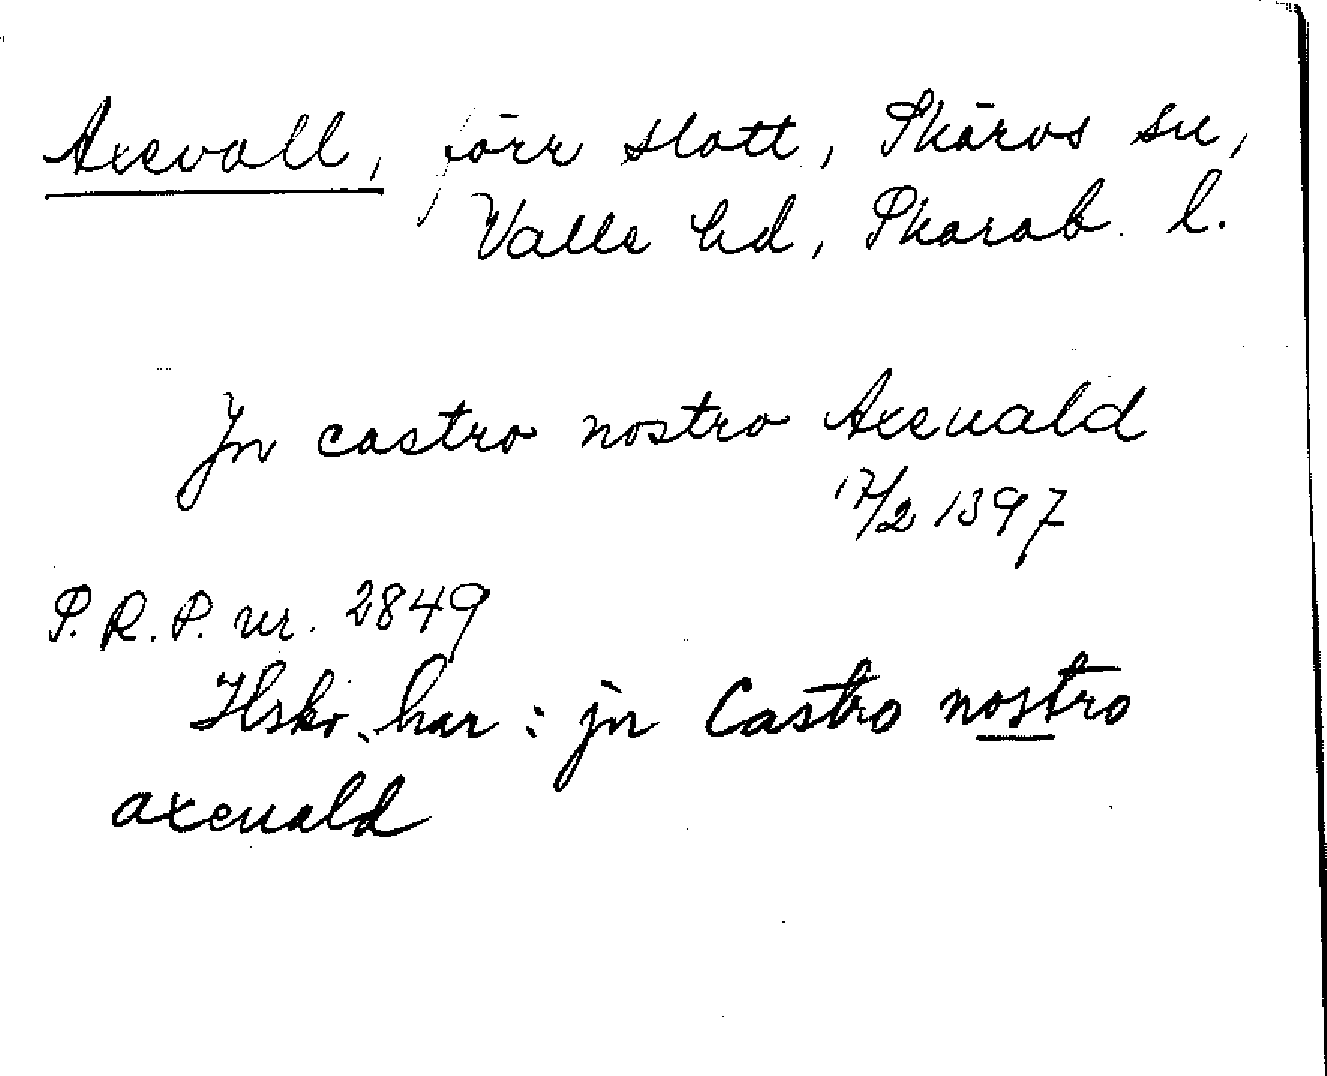 Axevall, förr slott, Skärvs sn,
Valle hd, Skarab. l.
Jn castro nostro Axeuald
17/2 1397
P. R. P. nr. 2849
Hskr. har: jn Castro nostro
axeuald